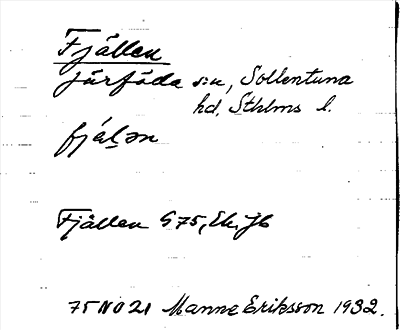 Fjällen
Järfäda sn, Sollentuna
hd. Sthlms l.
fjälən
Fjällen G75, Ek, Jb
75 NO 21 Manne Eriksson 1932.